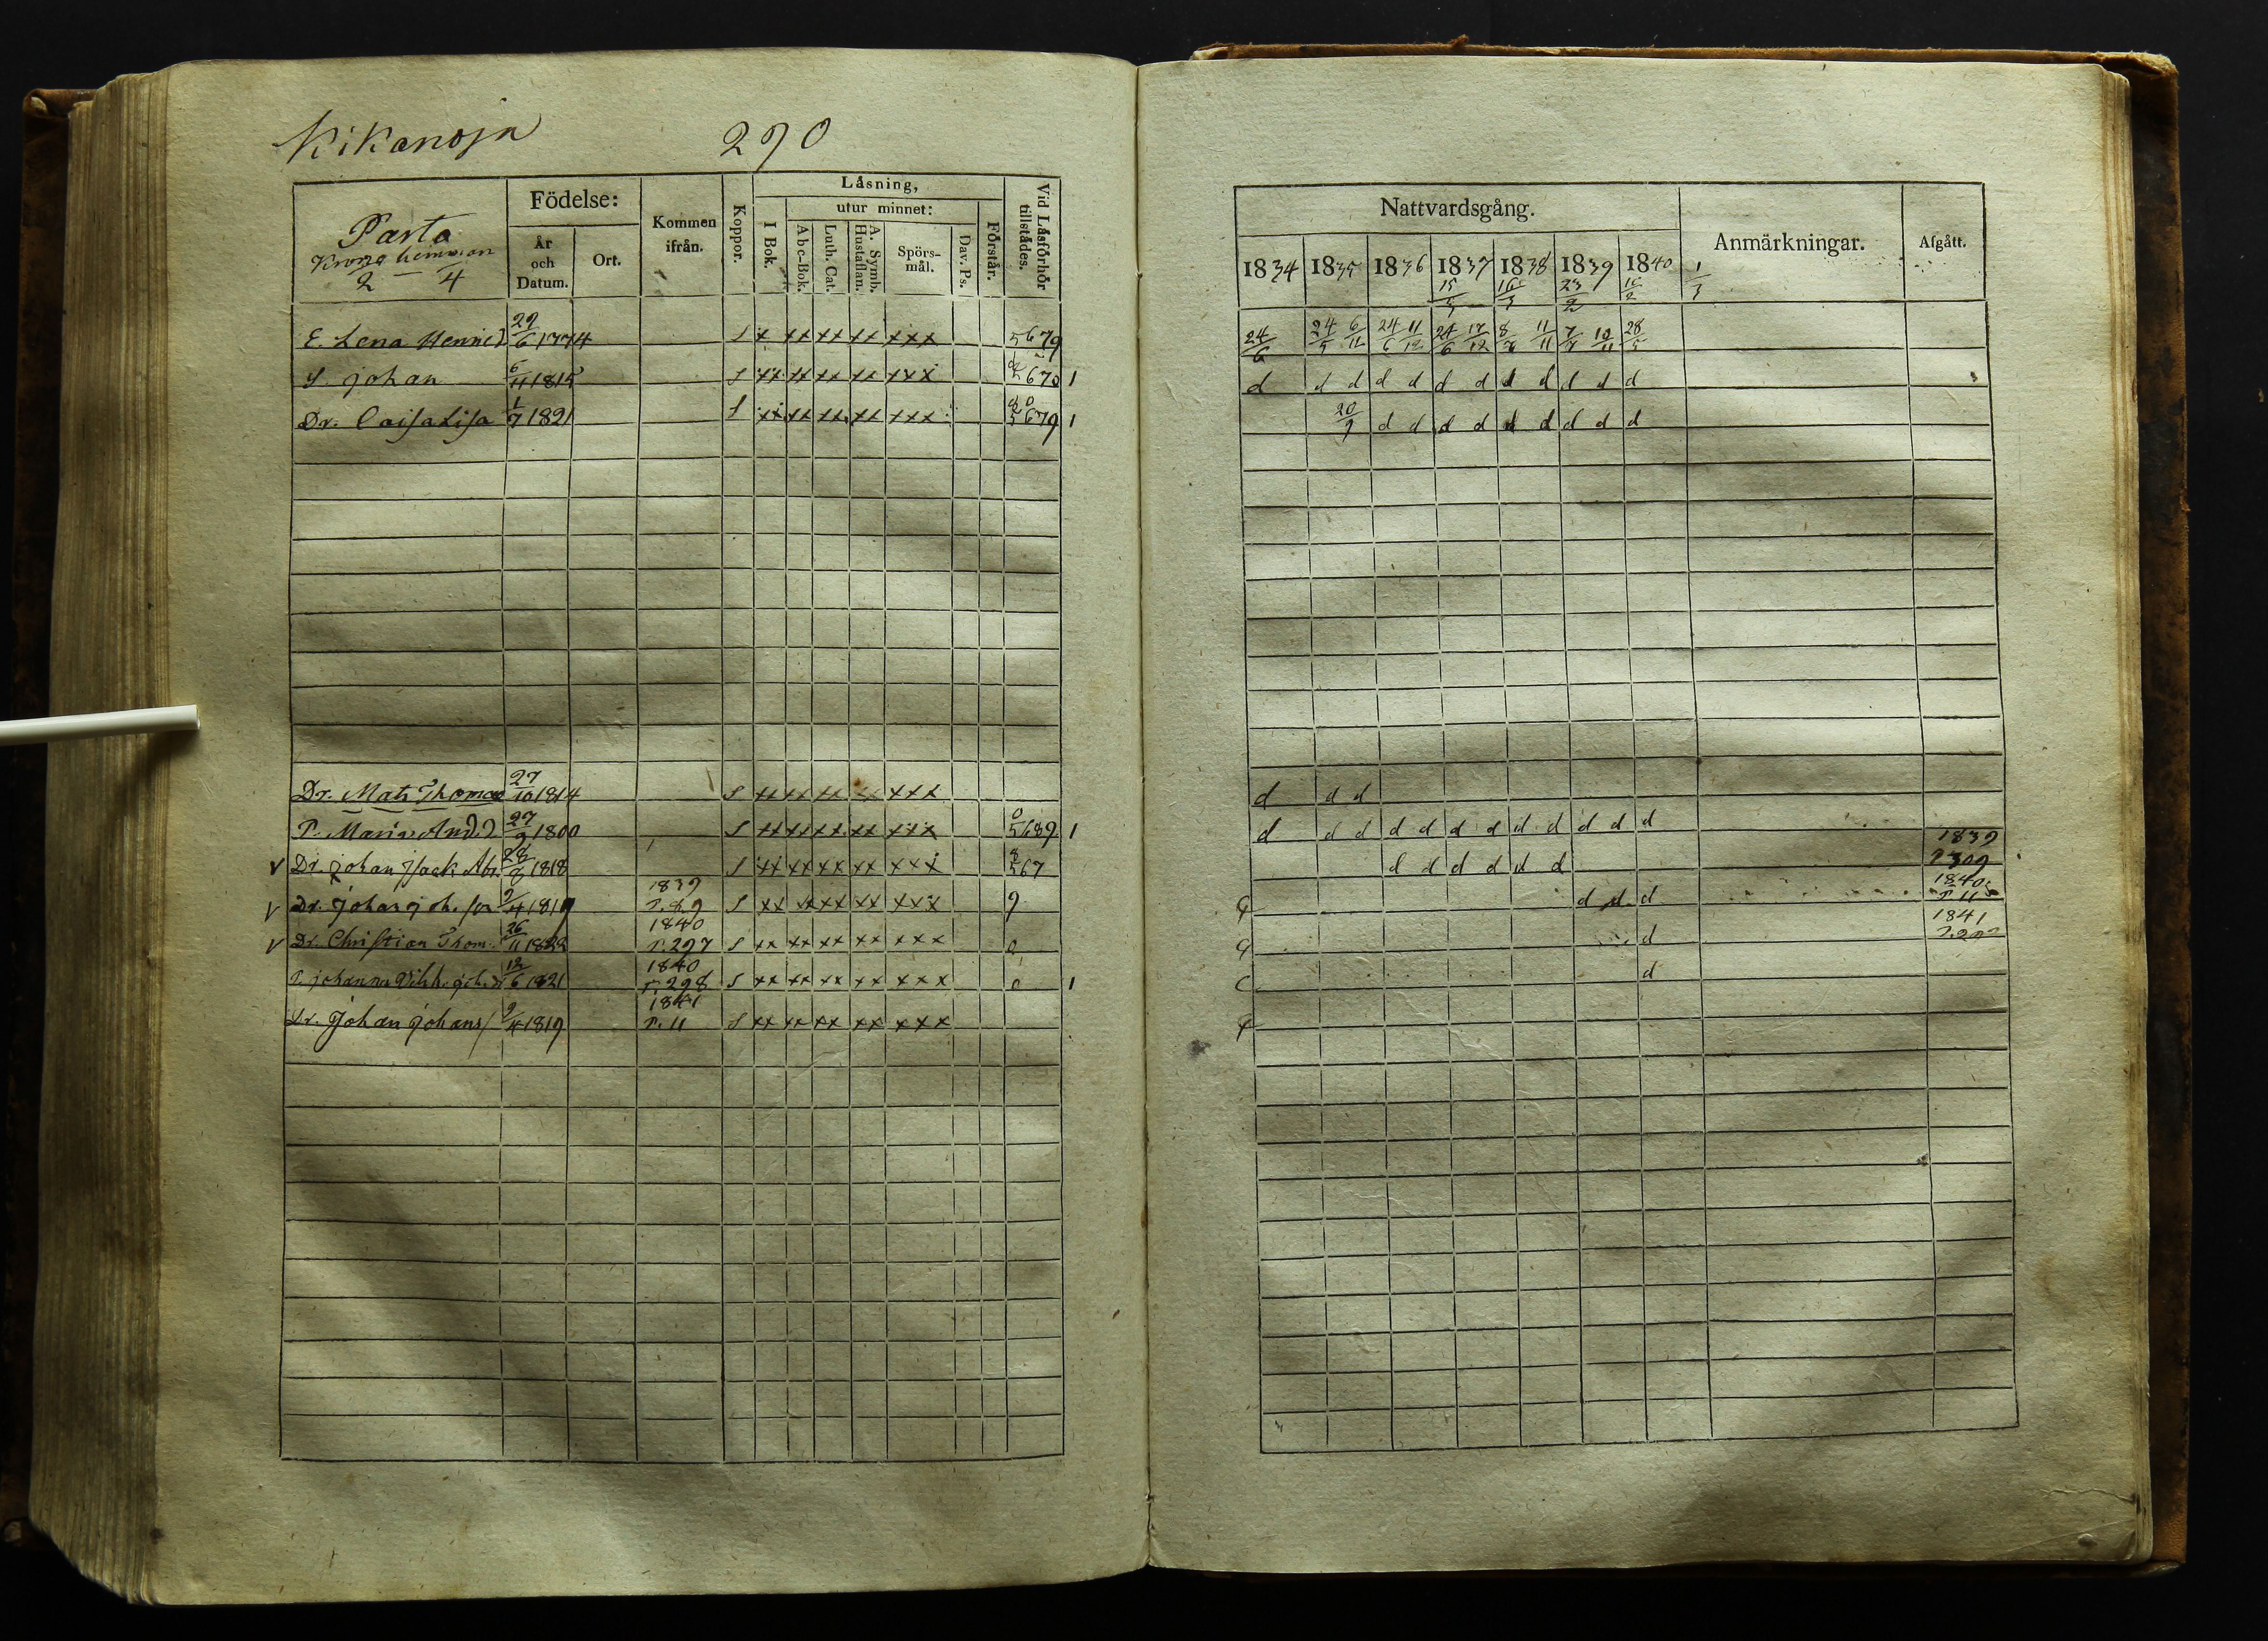 Kikanoja 290
Parta
Krono hemman
2 — 4
Födelse:
År och Datum.
Ort.
Kommen ifrån.
Koppor.
Låsning,
I Bok.
utur minnet:
Abc-Bok.
Luth. Cat.
A. Symb. Hustaflan.
Spörs-mål.
Dav. Ps.
Förstår.
Vid Låsförhör tillstådes.
Nattvardsgång.
1834 1835 1836 1837 1838 1839 1840
Anmärkningar.
Afgått.
15/3 16/3 23/2 16/2 1/3
E. Lena Henricd 29/6 1774 S x xx xx xx xxx 5679 24/6 24/5 6/11 24/6 11/12 24/6 17/12 8/7 11/11 7/7 10/11 28/5
S. Johan 6/11 1815 S xx xx xx xx xxx 670 1 d d d d d d d d d d d d
Dr. Caisa Lisa 1/7 1821 S xx xx xx xx xxx 5679 1 20/9 d d d d d d d d d
Dr. Mats Thomas 27/10 1814 S xx xx xx xx xxx d d d
P. Maria And.d 27/9 1800 S xx xx xx xx xxx 0 5689 1 d d d d d d d d d d d d
v Dr. Johan Isaak Abr. 28/8 1818 S xx xx xx xx xxx 8 567 d d d d d d 1839 P 309
v Dr. Johan Joh. son 2/4 1819 1839 P. 89 S xx xx xx xx xxx 9 d d d 1840 P. 11
v Dr. Christian Thom. 26/11 1822 1840 P. 297 S xx xx xx xx xxx 0 d 1841
P. Johanna Vilh. Joh.d 12/6 1821 1840 P. 298 S xx xx xx xx xxx 0 1 d
Dr. Johan Johans 2/4 1819 1841 P. 11 S xx xx xx xx xxx